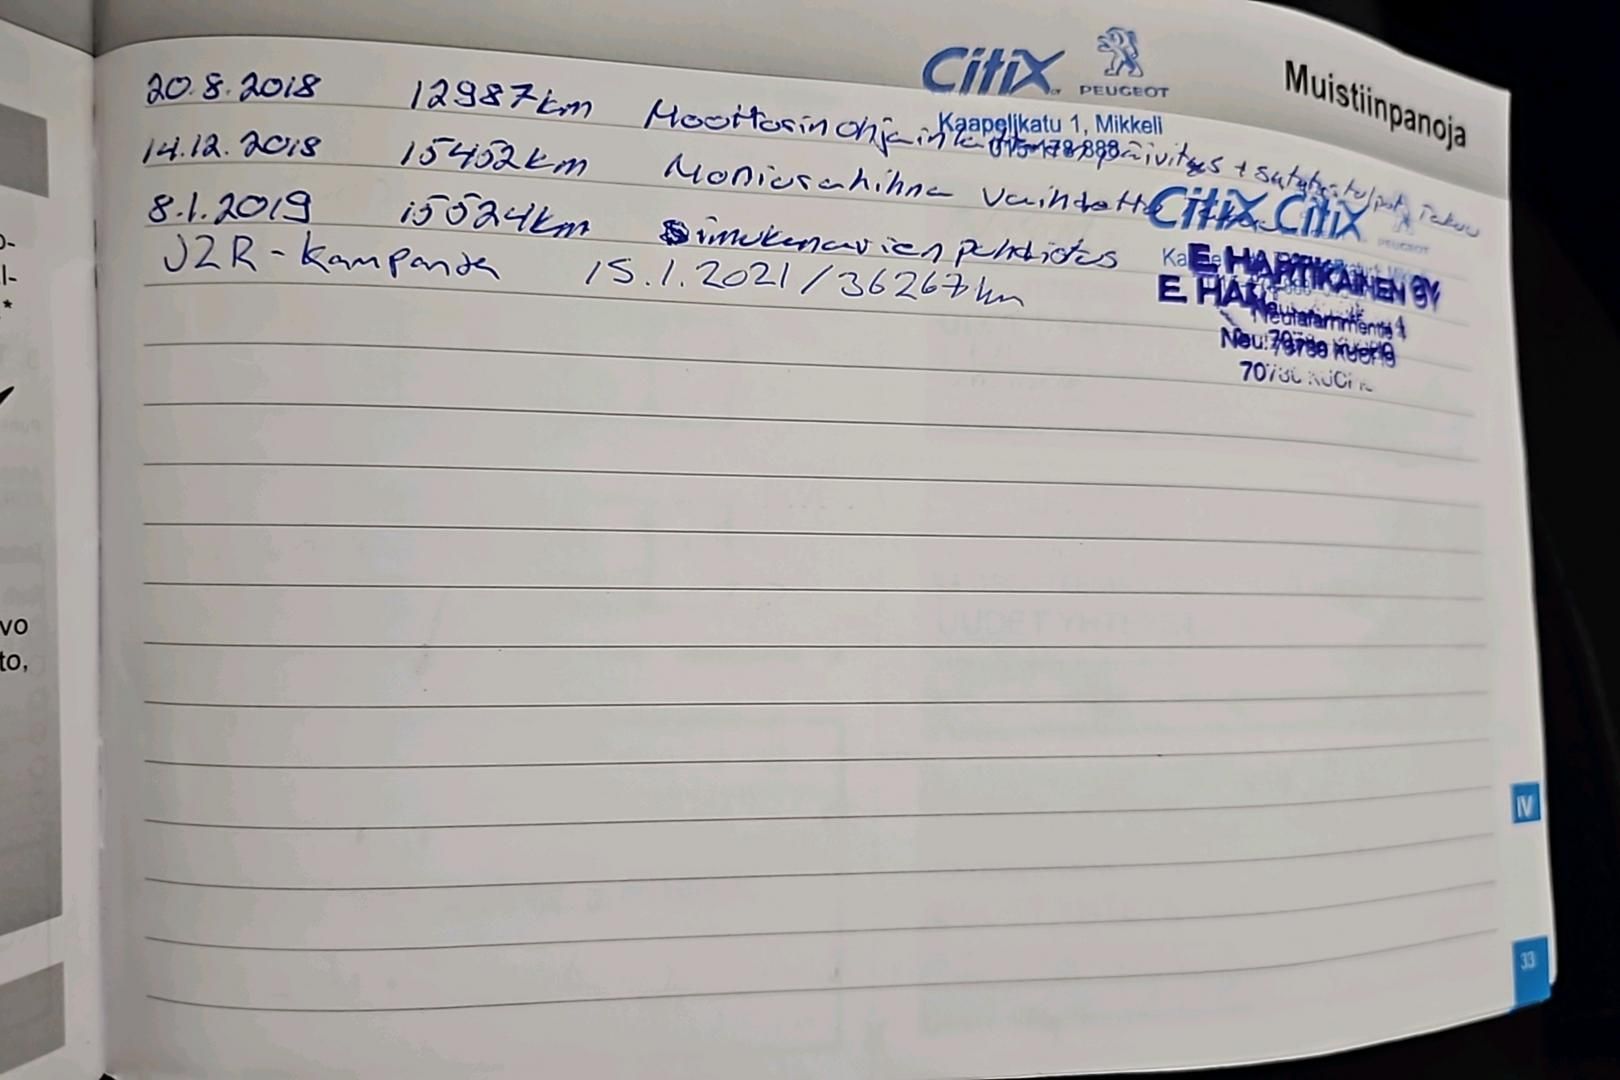 Muistiinpanoja
CitiX PEUGEOT
Kaapelikatu 1, Mikkeli
20.8.2018 12987km Moottorinohjain päivitys + sytytystulpat Takuu
14.12.2018 15452km Moniurahihna vaihdettu
8.1.2019 15524km Simukanavien puhdistus
JZR-Kampanja 15.1.2021/36267km
CitiX CitiX
PEUGEOT
E HARTIKAINEN OY
E HAR
Neulatammentie 4
70780 KUOPIO
IV
33
vo
to,